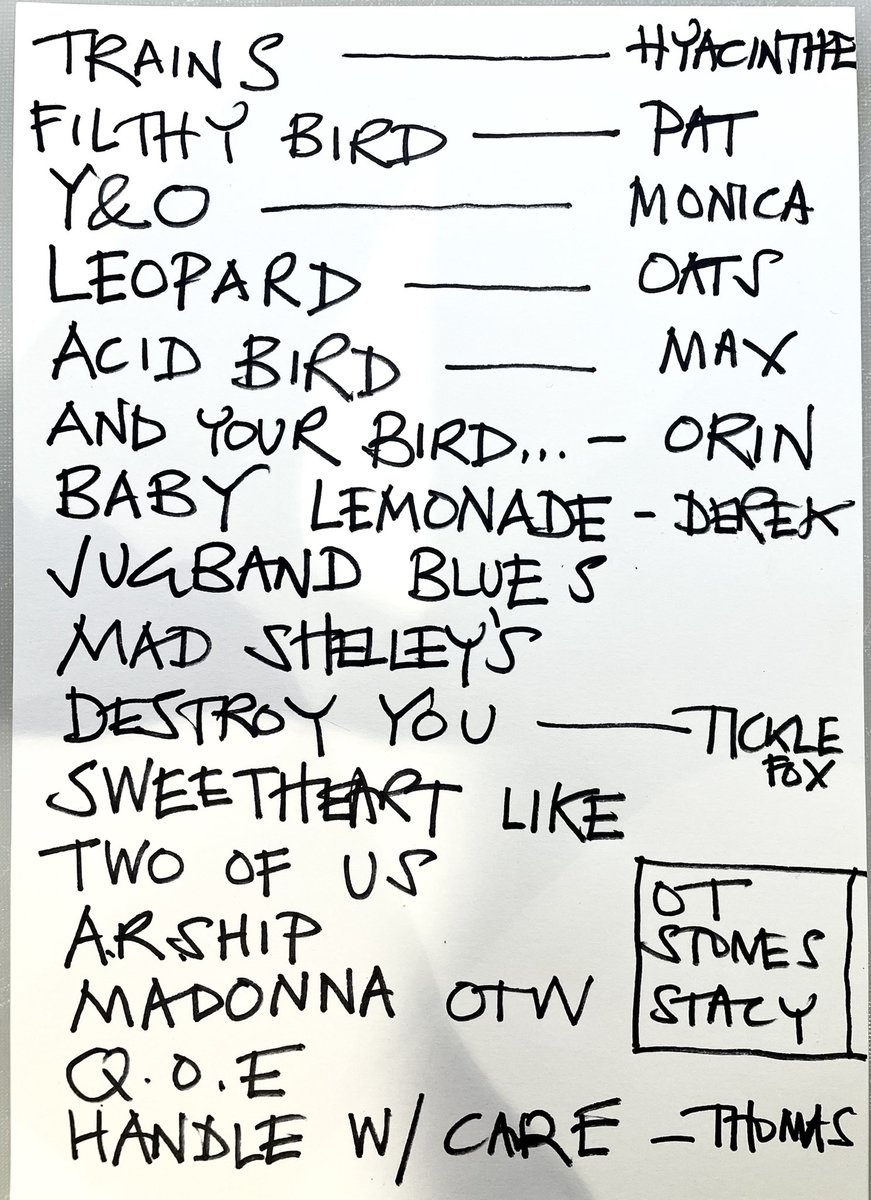 TRAINS — HYACINTHE
FILTHY BIRD — PAT
Y&O — MONICA
LEOPARD — OATS
ACID BIRD — MAX
AND YOUR BIRD... – ORIN
BABY LEMONADE - DEREK
JUGBAND BLUES
MAD SHELLEY'S
DESTROY YOU — TICKLE
FOX
SWEETHEART LIKE
TWO OF US
A.R.SHIP
MADONNA OTW
Q.O.E
HANDLE W/ CARE – THOMAS
OT
STONES
STACY